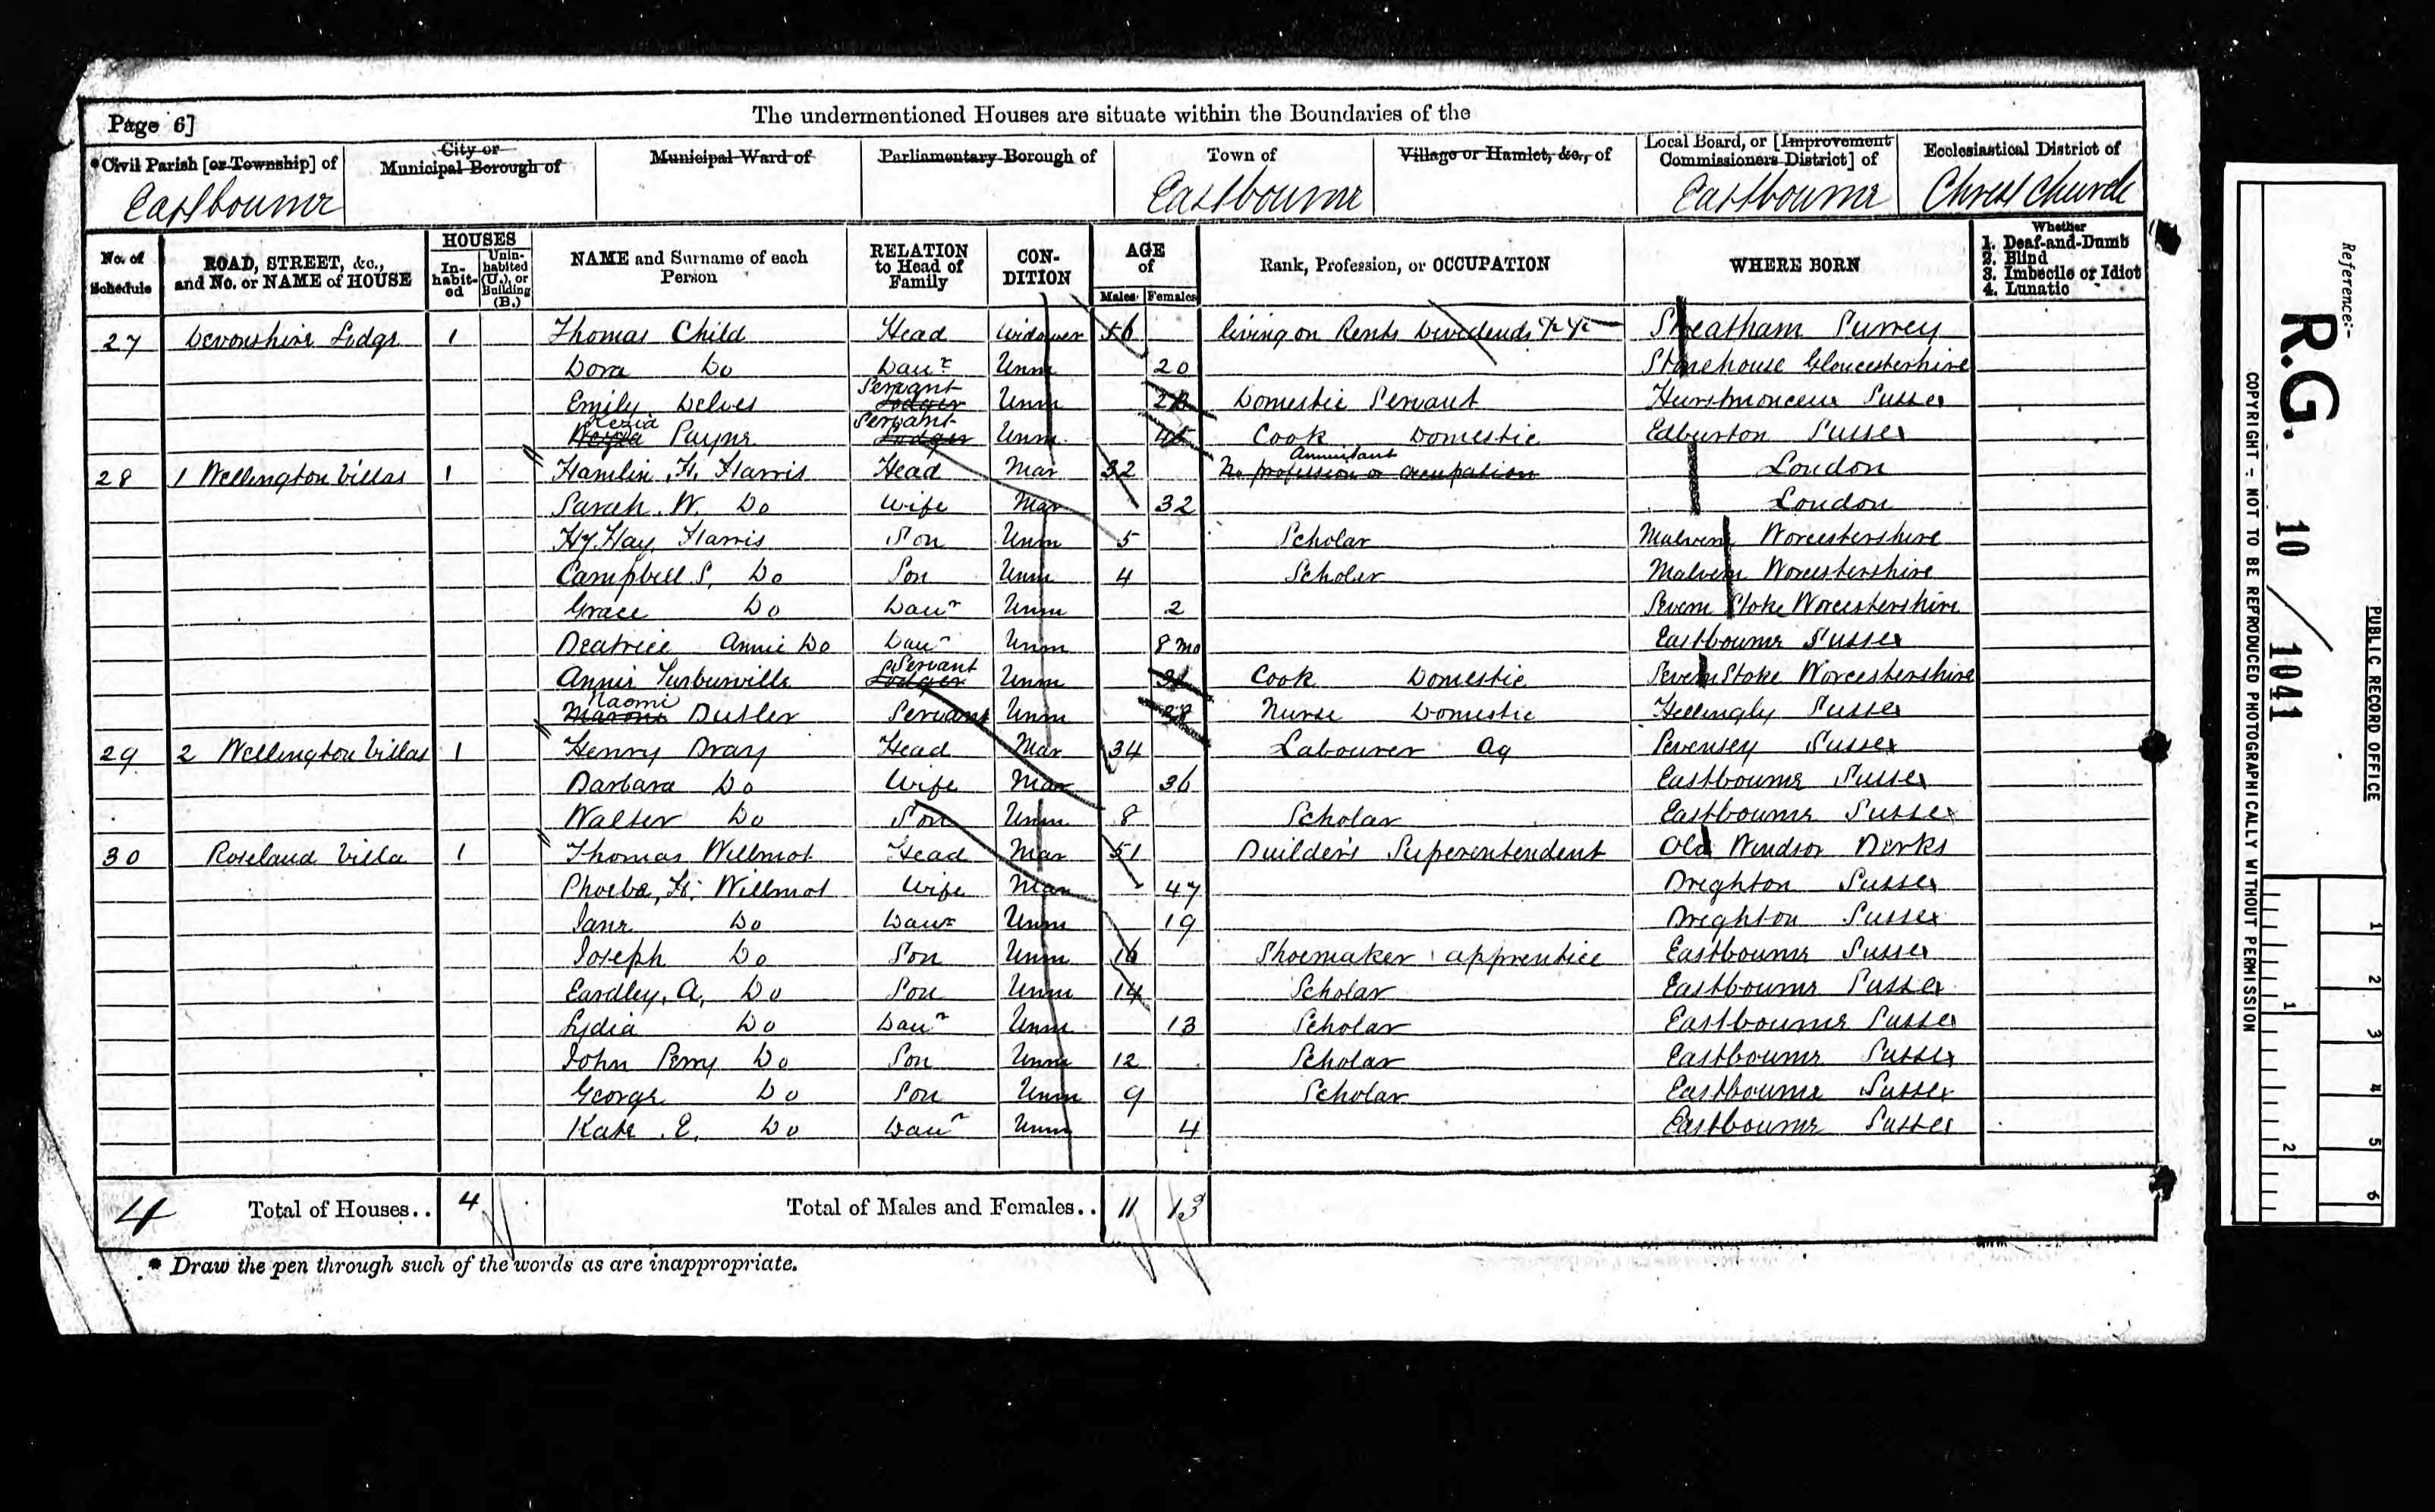 The undermentioned Houses are situate within the Boundaries of the
Page 6]
*Civil Parish [or Township] of
City or Municipal Borough of
Municipal Ward of
Parliamentary Borough of
Town of
Village or Hamlet, &c., of
Local Board, or [Improvement Commissioners District] of
Ecclesiastical District of
Eastbourne Eastbourne Eastbourne Christ Church
No. of Schedule
ROAD, STREET, &c., and No. or NAME of HOUSE
HOUSES
Inhabited
Uninhabited (U.), or Building (B.)
NAME and Surname of each Person
RELATION to Head of Family
CONDITION
AGE of
Males Females
Rank, Profession, or OCCUPATION
WHERE BORN
Whether
1. Deaf-and-Dumb
2. Blind
3. Imbecile or Idiot
4. Lunatic
27 Devonshire Lodge 1 Thomas Child Head Widower 56 living on Rents Dividends Streatham Surrey
Dora Do Daur Unm 20 Stonehouse Gloucestershire
Emily Delves Lodger Servant Unm Domestic Servant Hurstmonceux Sussex
Kezia Payne Lodger Servant Unm 45 Cook Domestic Edburton Sussex
28 1 Wellington Villas 1 Hamlin H. Harris Head Mar 32 No profession or occupation Annuitant London
Sarah W. Do Wife Mar 32 London
Hy Hay Harris Son Unm 5 Scholar Malvern Worcestershire
Campbell S. Do Son Unm 4 Scholar Malvern Worcestershire
Grace Do Daur Unm 2 Severn Stoke Worcestershire
Beatrice Annie Do Daur Unm 8 mo Eastbourne Sussex
Annie Turberville Lodger Servant Unm Cook Domestic Severn Stoke Worcestershire
Naomi Butler Servant Unm 28 Nurse Domestic Hellingly Sussex
29 2 Wellington Villas 1 Henry Bray Head Mar 34 Labourer Ag Pevensey Sussex
Barbara Do Wife Mar 36 Eastbourne Sussex
Walter Do Son Unm 8 Scholar Eastbourne Sussex
30 Roseland Villa 1 Thomas Willmot Head Mar 51 Builder's Superentendent Old Windsor Berks
Phoebe, H. Willmot Wife Mar 47 Brighton Sussex
Jane Do Daur Unm 19 Brighton Sussex
Joseph Do Son Unm 16 Shoemaker apprentice Eastbourne Sussex
Eardley, A, Do Son Unm 14 Scholar Eastbourne Sussex
Lydia Do Daur Unm 13 Scholar Eastbourne Sussex
John Perry Do Son Unm 12 Scholar Eastbourne Sussex
George Do Son Unm 9 Scholar Eastbourne Sussex
Kate E. Do Daur Unm 4 Eastbourne Sussex
4 Total of Houses.. 4 Total of Males and Females.. 11 13
* Draw the pen through such of the words as are inappropriate.
Reference:-
R.G. 10 / 1041
PUBLIC RECORD OFFICE
COPYRIGHT - NOT TO BE REPRODUCED PHOTOGRAPHICALLY WITHOUT PERMISSION
1 2 3 4 5 6
1 2